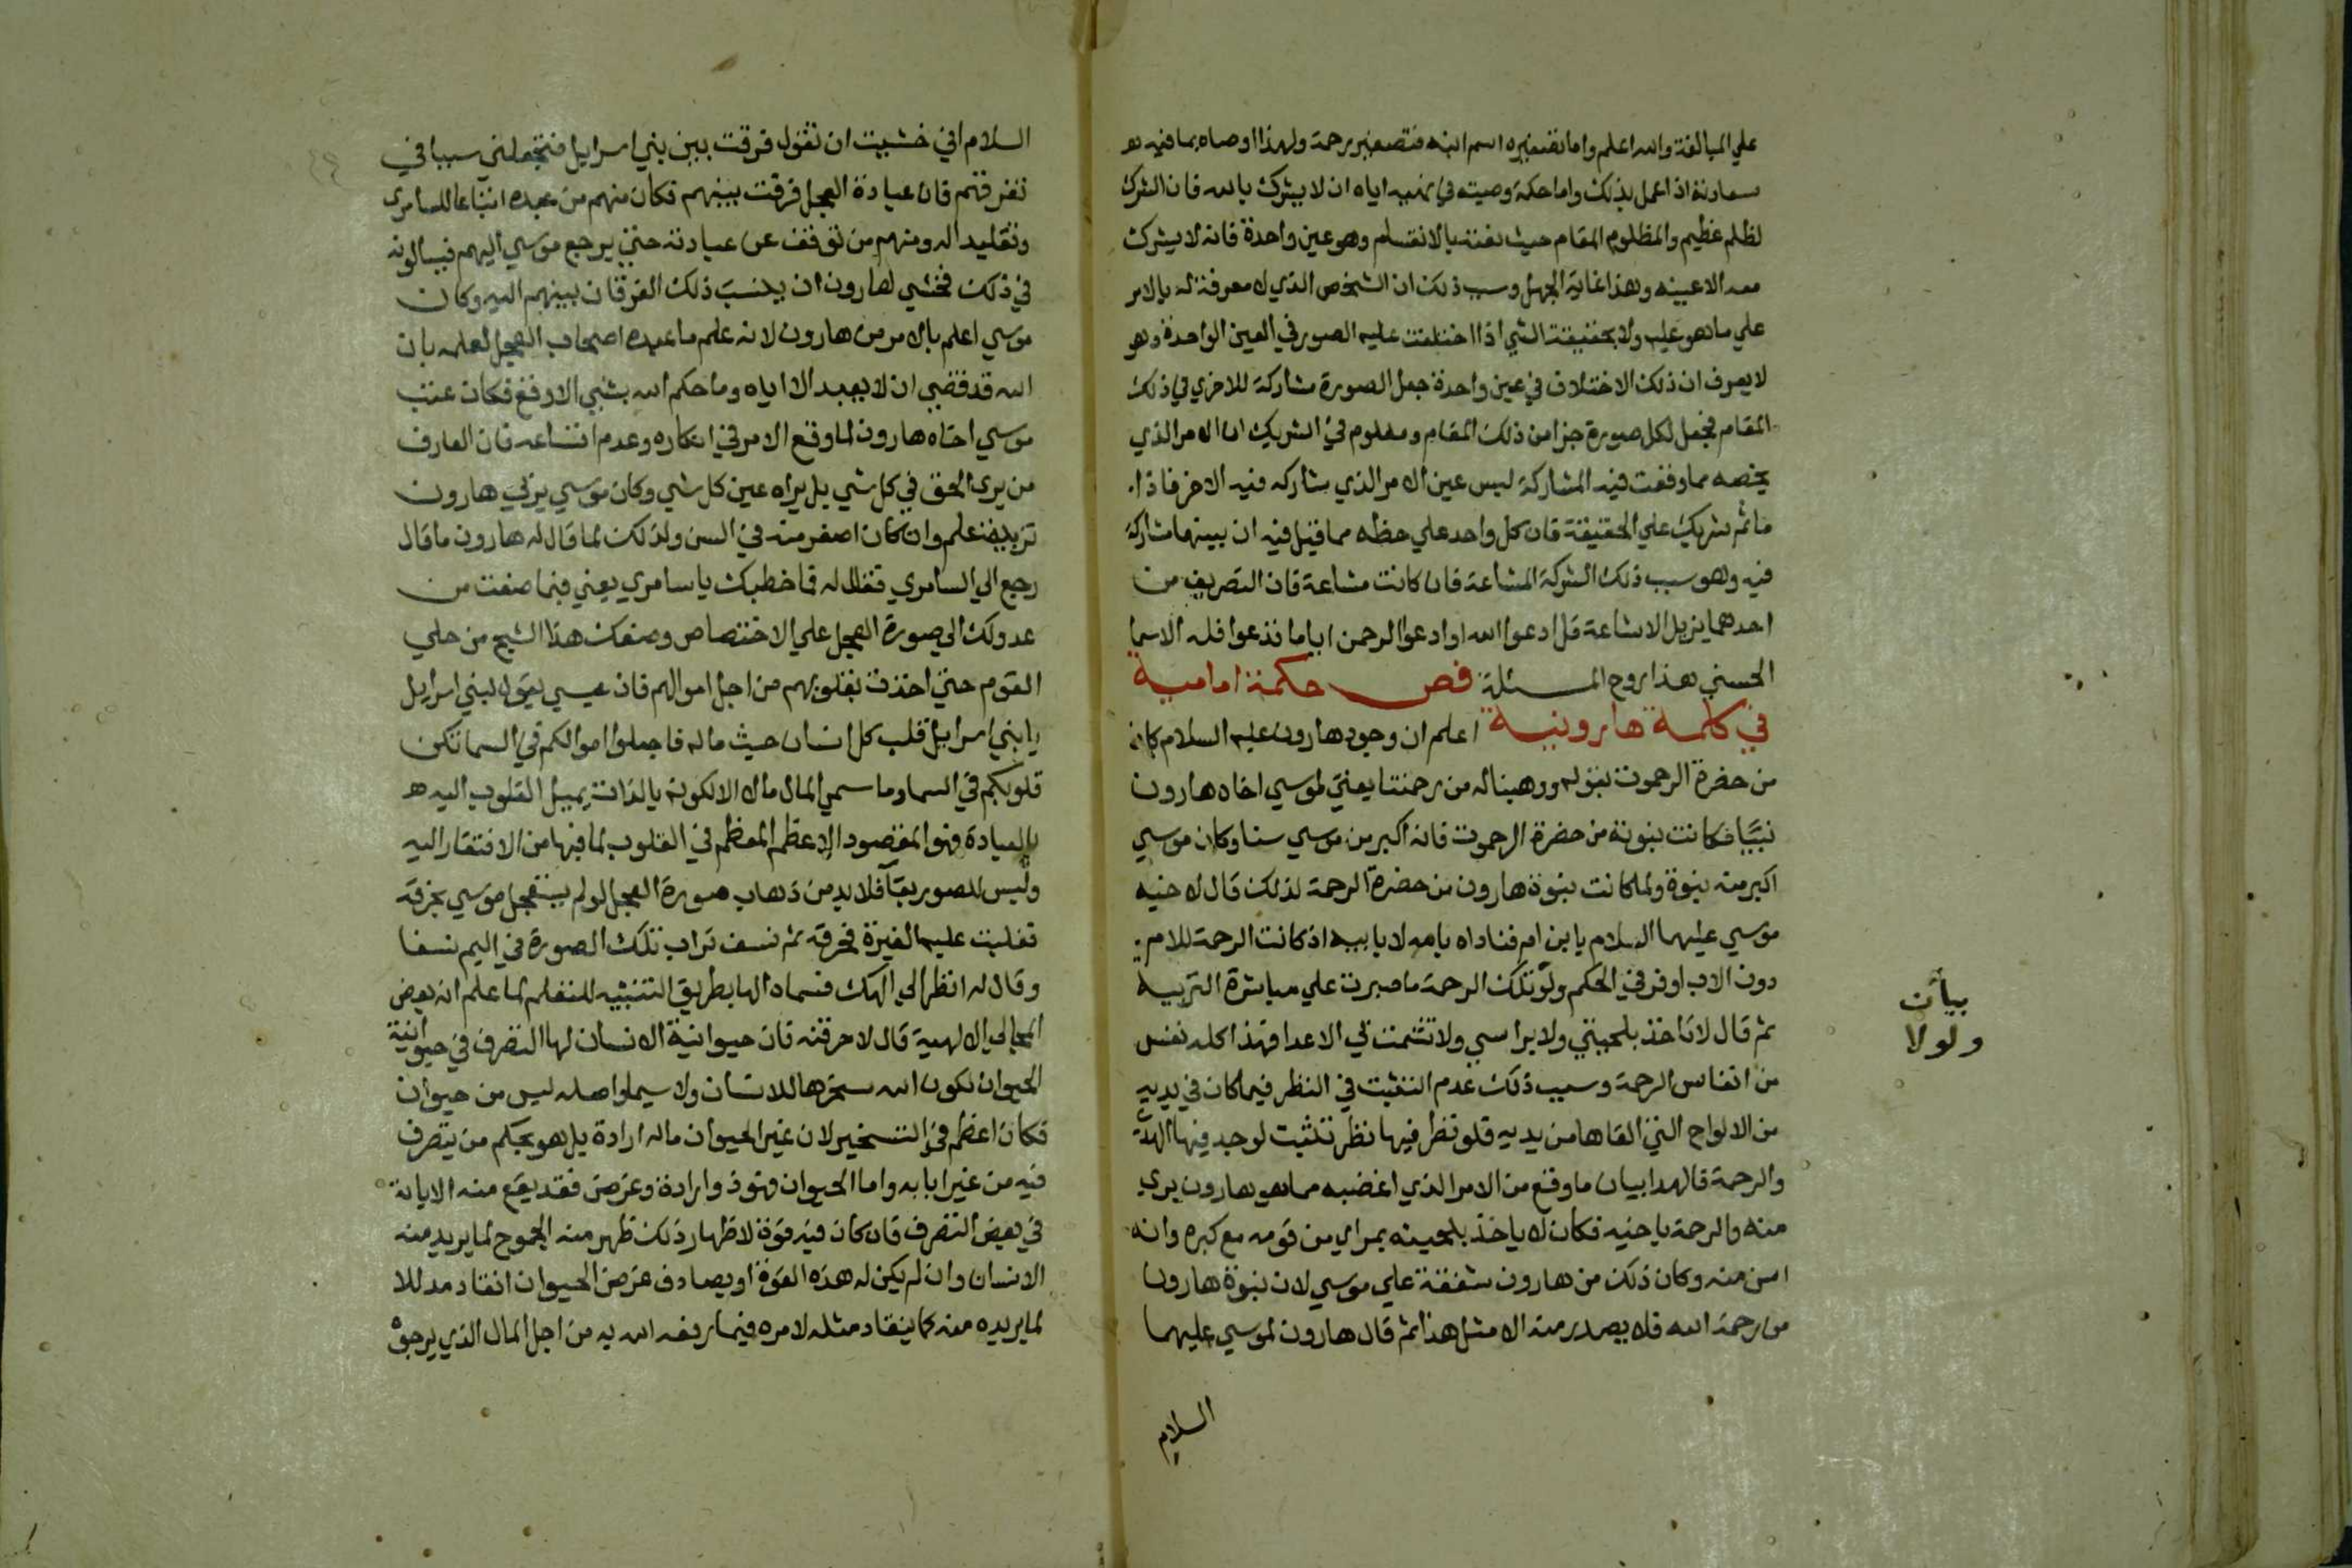 علي المبالغة والله اعلم واما تصغيره اسم ابنه فتصغير رحمة ولهذا اوصاه بما فيه
سعادته اذا عمل بذلك واما حكمة وصيته في نهيه اياه ان لا يشرك بالله فان الشرك
لظلم عظيم والمظلوم المقام حيث نعته بالانقسام وهو عين واحدة فانه لا يشرك
معه الا عينه وهذا غاية الجهل وسبب ذلك ان الشخص الذي لا معرفة له بالامر
علي ما هو عليه ولا بحقيقة الشي اذا اختلفت عليه الصور في العين الواحدة وهو
لا يعرف ان ذلك الاختلاف في عين واحدة جعل الصورة مشاركة للاخري في ذلك
المقام فجعل لكل صورة جزا من ذلك المقام ومعلوم في الشريك ان الامر الذي
يخصه مما وقعت فيه المشاركة ليس عين الامر الذي شاركه فيه الاخر فاذا
ما ثم شريك علي الحقيقة فان كل واحد علي حظه مما قيل فيه ان بينهما مشاركة
فيه وهو سبب ذلك الشركة المشاعة فان كانت مشاعة فان التصريف من
احدهما يزيل الاشاعة قل ادعوا الله او ادعوا الرحمن اياما تدعوا فله الاسما
الحسني هذا روح المسئلة فص حكمة امامية
في كلمة هارونية اعلم ان وجود هارون عليه السلام كان
من حضرة الرحموت بقوله ووهبنا له من رحمتنا يعني لموسي اخاه هارون
نبيا فكانت نبوته من حضرة الرحموت فانه اكبر من موسي سنا وكان موسي
اكبر منه نبوة ولما كانت نبوة هارون من حضرة الرحمة لذلك قال لاخيه
موسي عليهما السلام يا ابن ام فناداه بامه لا بابيه اذ كانت الرحمة للام
دون الاب اوفر في الحكم ولو تلك الرحمة ما صبرت علي مباشرة التربية
ثم قال لا تاخذ بلحيتي ولا براسي ولا تشمت بي الاعدا فهذا كله نفس
من انفاس الرحمة وسبب ذلك عدم التثبت في النظر فيما كان في يديه
من الالواح التي القاها من يديه فلو نظر فيها نظر تثبت لوجد فيها الهدي
والرحمة فالهدا بيان ما وقع من الامر الذي اغضبه مما هو هارون بري
منه والرحمة باخيه فكان لا ياخذ بلحيته بمراي من قومه مع كبره وانه
اسن منه وكان ذلك من هارون شفقة علي موسي لان نبوة هارون
من رحمة الله فلا يصدر منه الا مثل هذا ثم قال هارون لموسي عليهما
السلام
بيان
ولولا
السلام اني خشيت ان تقول فرقت بين بني اسرايل فتجعلني سببا في
تفرقتهم فان عبادة العجل فرقت بينهم فكان منهم من عبده اتباعا للسامري
وتقليدا له ومنهم من توقف عن عبادته حتي يرجع موسي اليهم فيسالونه
في ذلك فخشي هارون ان ينسب ذلك الفرقان بينهم اليه وكان
موسي اعلم بالامر من هارون لانه علم ما عبده اصحاب العجل لعلمه بان
الله قد قضي ان لا يعبد الا اياه وما حكم الله بشي الا وقع فكان عتب
موسي اخاه هارون لما وقع الامر في انكاره وعدم اتساعه فان العارف
من يري الحق في كل شي بل يراه عين كل شي وكان موسي يربي هارون
تربية علم وان كان اصغر منه في السن ولذلك لما قال له هارون ما قال
رجع الي السامري فقال له فما خطبك يا سامري يعني فيما صنعت من
عدولك الي صورة العجل علي الاختصاص وصنعك هذا الشبح من حلي
القوم حتي اخذت بقلوبهم من اجل اموالهم فان عيسي يقول لبني اسرايل
يا بني اسرايل قلب كل انسان حيث ماله فاجعلوا اموالكم في السما تكن
قلوبكم في السما وما سمي المال مال الا لكونه بالذات يميل القلوب اليه
بالعبادة فهو المقصود الاعظم المعظم في القلوب لما فيها من الافتقار اليه
وليس للصور بقا فلا بد من ذهاب صورة العجل لو لم يستعجل موسي بحرقه
تغلبت عليه الغيرة فحرقه ثم نسف تراب تلك الصورة في اليم نسفا
وقال له انظر الي الهك فسماه الها بطريق التنبيه للتعلم لما علم انه بعض
المجالي الالهية قال لاحرقنه فان حيوانية الانسان لها التصرف في حيوانية
الحيوان لكون الله سخرها للانسان ولا سيما واصله ليس من حيوان
فكان اعظم في التسخير لان غير الحيوان ماله ارادة بل هو بحكم من يتصرف
فيه من غير ابابه واما الحيوان فهو ذو ارادة وغرض فقد يقع منه الاباية
في بعض التصرف فان كان فيه قوة لاظهار ذلك ظهر منه الجموح لما يريد منه
الانسان وان لم يكن له هذه القوة او يصادف غرض الحيوان انقاد مذللا
لما يريده منه كما ينقاد مثله لامره فيما رفعه الله به من اجل المال الذي يرجوه